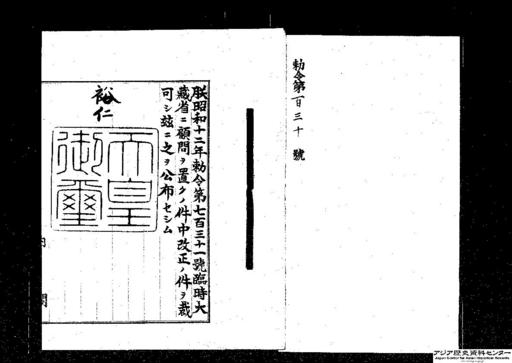 勅令第百三十號
朕昭和十二年勅令第七百三十一號臨時大
藏省ニ顧問ヲ置クノ件中改正ノ件ヲ裁
可シ玆ニ之ヲ公布セシム
裕仁
天皇御璽
内閣
アジア歴史資料センター
Japan Center for Asian Historical Records